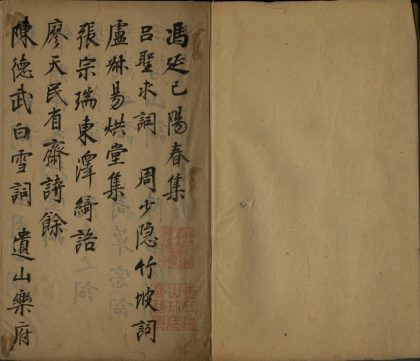 馮延巳陽春集
呂聖求詞 周少隐竹坡詞
盧烌易烘堂集
張宗瑞東澤綺語
廖天民省齋詩餘
陳德武白雪詞 遺山樂府